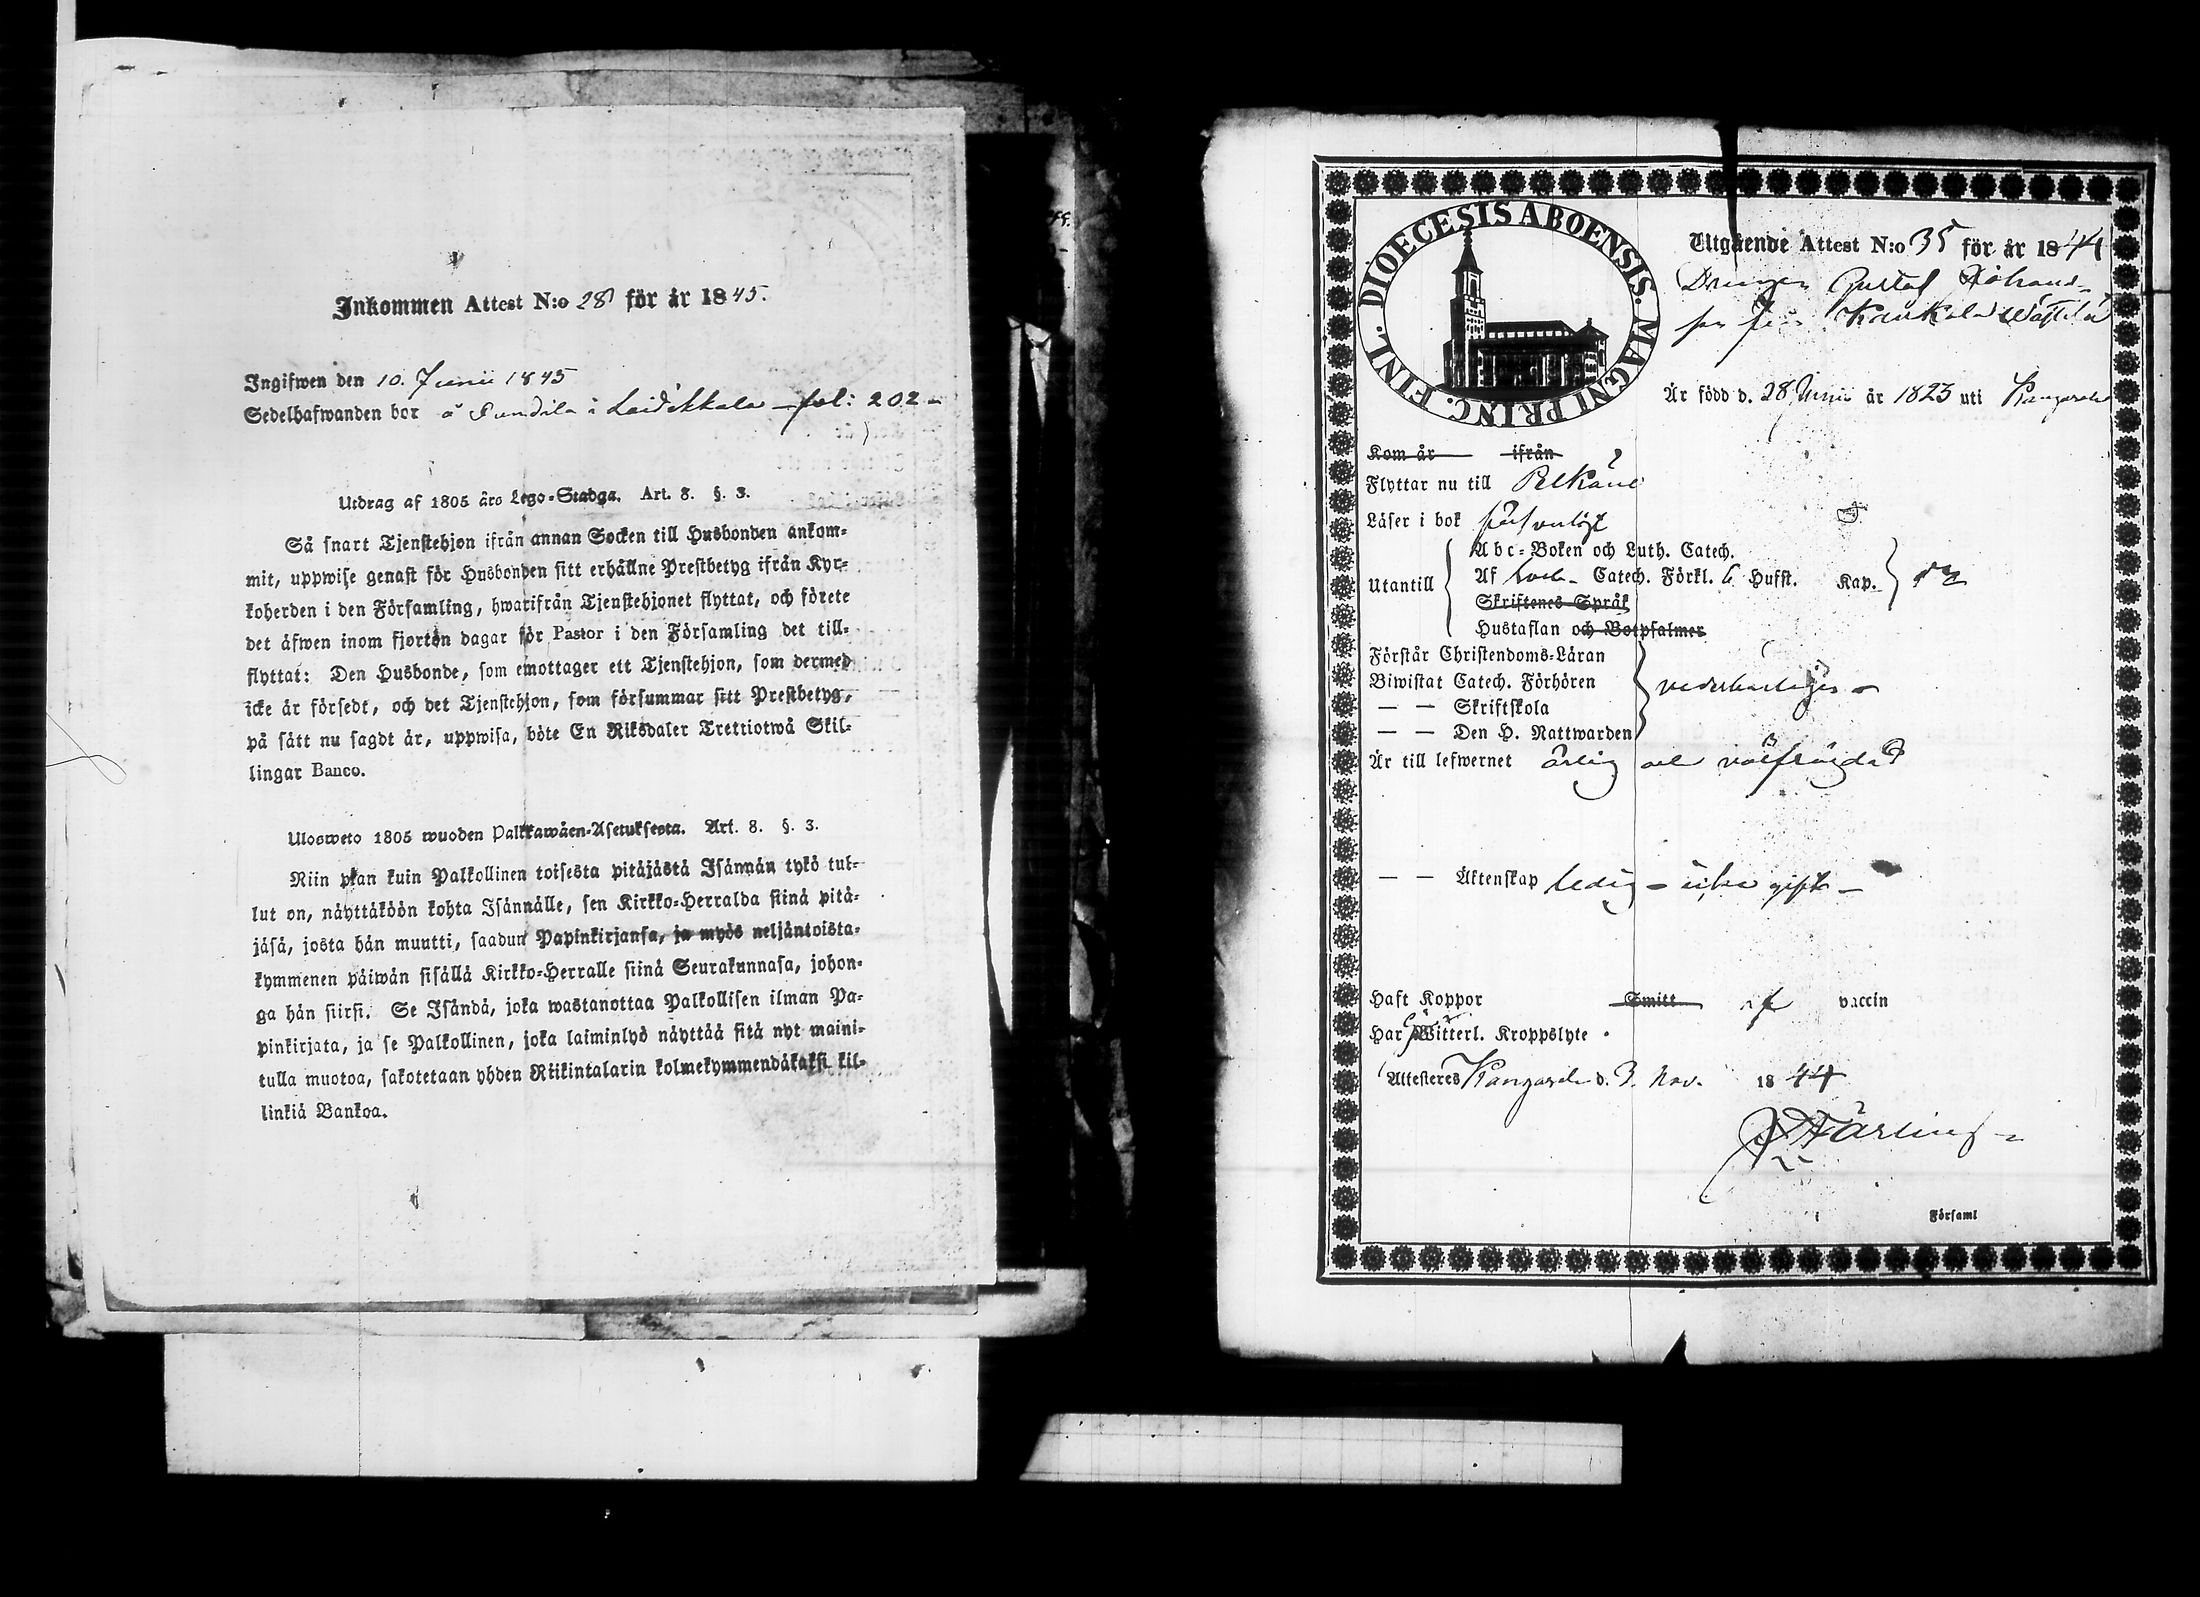 Inkommen Attest N:o 28 för år 1845.
Ingifwen den 10. Junii 1845
Sedelhafwanden bor å Pundila i Laidikkala – fol: 202 –
Utdrag af 1805 års Lego-Stadga. Art. 8. §. 3.
Så snart Tjenstehjon ifrån annan Socken till Husbonden ankom-
mit, uppwise genast för Husbonden sitt erhållne Prestbetyg ifrån Kyr-
koherden i den Församling, hwarifrån Tjenstehjonet flyttat, och förete
det äfwen inom fjorton dagar för Pastor i den Församling det till-
flyttat: Den Husbonde, som emottager ett Tjenstehjon, som dermed
icke är försedt, och det Tjenstehjon, som försummar sitt Prestbetyg,
på sätt nu sagdt är, uppwisa, böte En Riksdaler Trettiotwå Skil-
lingar Banco.
Ulosweto 1805 wuoden Palkkawäen-Asetuksesta. Art. 8. §. 3.
Niin pian kuin Palkollinen toisesta pitäjästä Isännän tykö tul-
lut on, näyttäköön kohta Isännälle, sen Kirkko-Herralda siinä pitä-
jäsä, josta hän muutti, saadun Papinkirjansa, ja myös neljäntoista-
kymmenen päiwän sisällä Kirkko-Herralle siinä Seurakunnasa, johon-
ga hän siirsi. Se Isändä, joka wastanottaa Palkollisen ilman Pa-
pinkirjata, ja se Palkollinen, joka laiminlyö näyttää sitä nyt maini-
tulla muotoa, sakotetaan yhden Riikintalarin kolmekymmendäkaksi kil-
linkiä Bankoa.
DIOECESIS ABOENSIS. MAGNI PRINC. FINL.
Utgående Attest N:o 35 för år 1844
Drengen Gustaf Johans-
son från Kaukala Wättilä
Är född d. 28 Junii år 1823 uti Kangasala
Kom år ifrån
Flyttar nu till Pelkäne
Läser i bok försvarligt
Abc-Boken och Luth. Catech.
Utantill Af Catech. Förkl. 6 Hufst. Kap.
Skriftenes Språk
Hustaflan och Botpsalmer
Förstår Christendoms-Läran
Biwistat Catech. Förhören
— — Skriftskola
— — Den H. Nattwarden
Är till lefwernet ärlig och välfräjdad
— — Äktenskap ledig – icke gift –
Haft Koppor Smitt. af vaccin
Har Witterl. Kroppslyte
Attesteres Kangasala d. 3. Nov. 1844
Församl